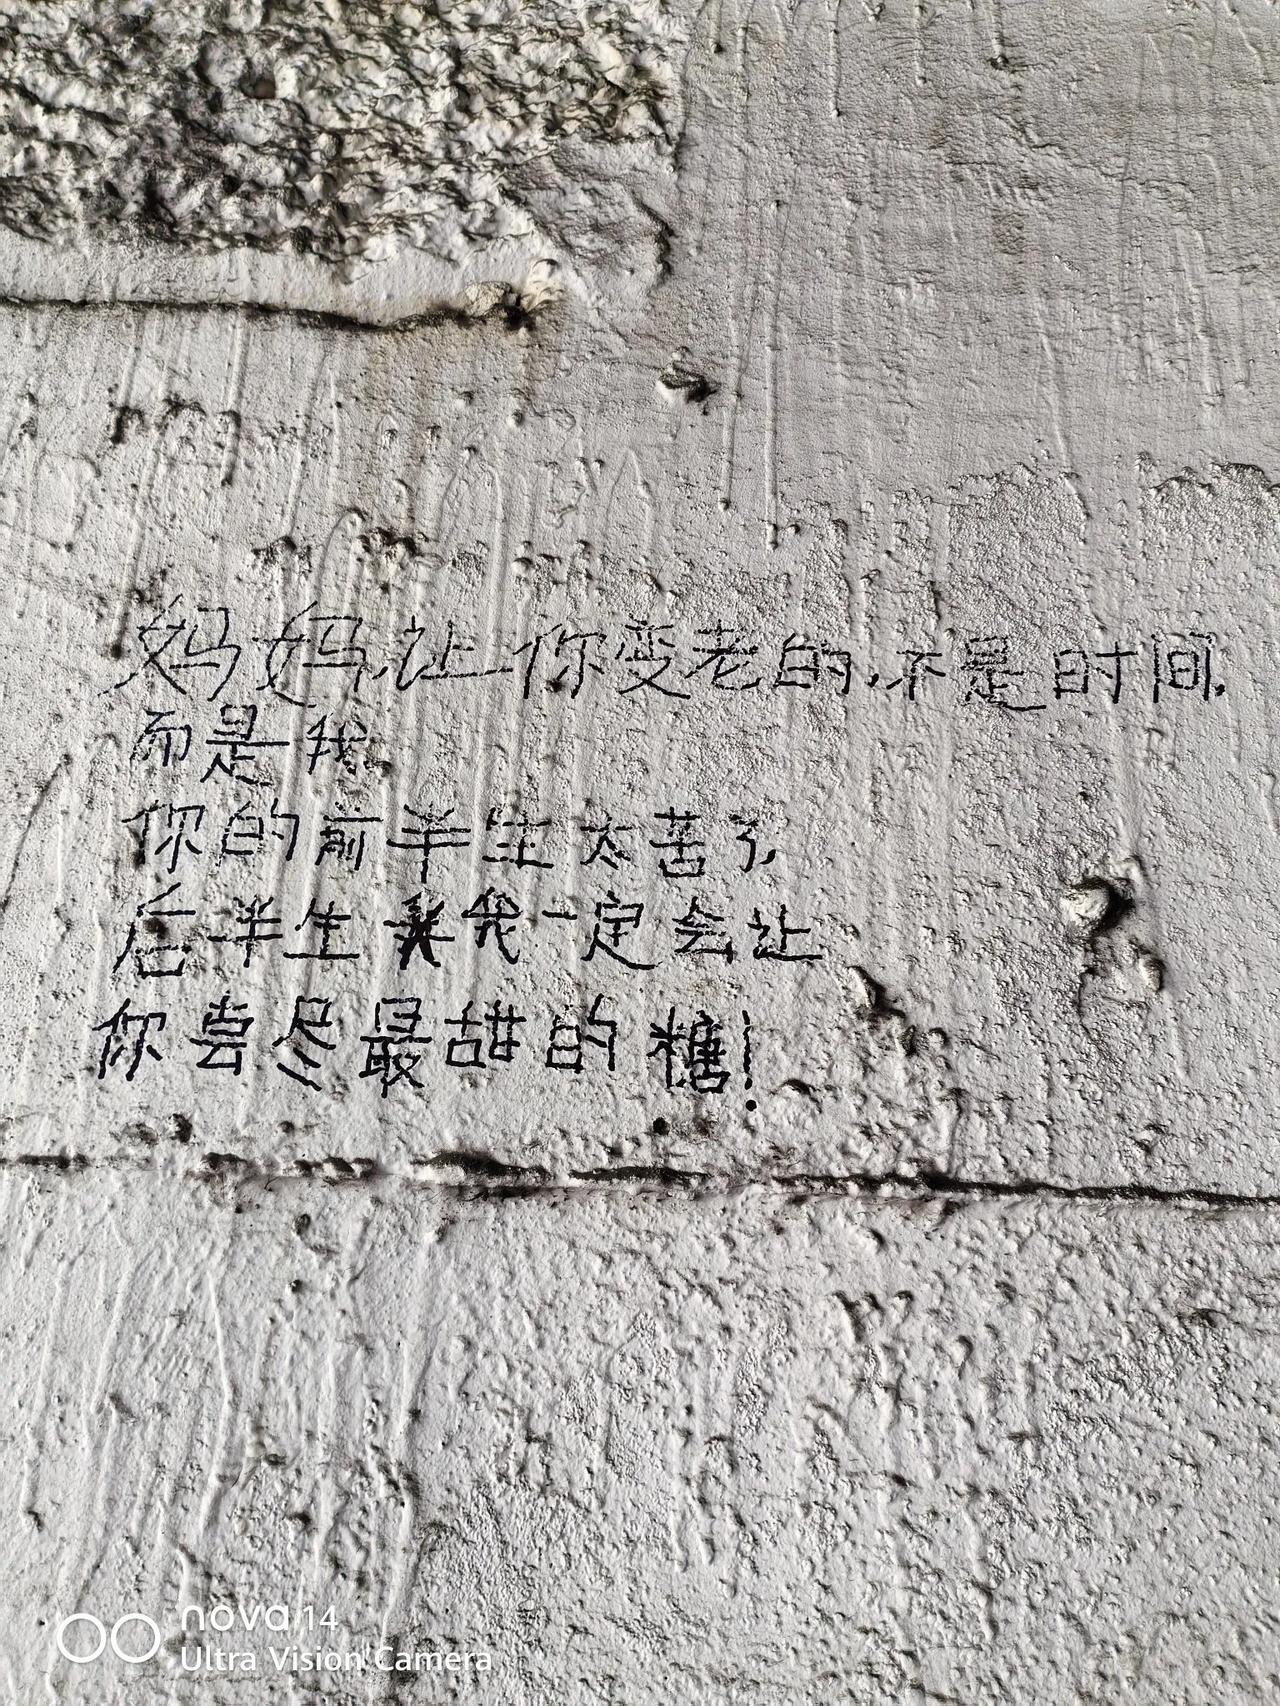 妈妈,让你变老的,不是时间,
而是我,
你的前半生太苦了,
后半生我一定会让
你尝尽最甜的糖!
nova 14
Ultra Vision Camera